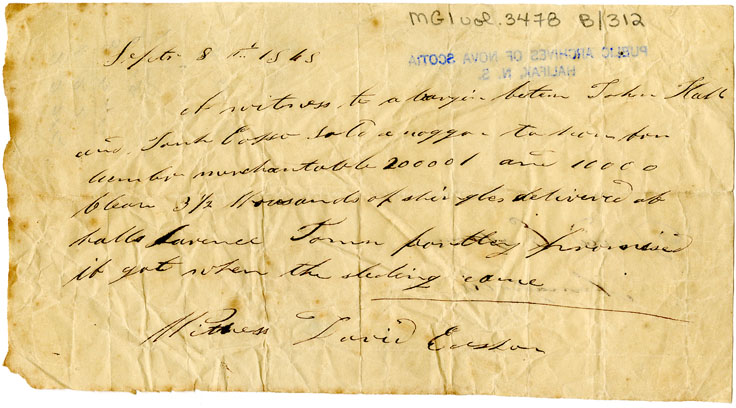 MG1 vol. 3478 B/312
PUBLIC ARCHIVES OF NOVA SCOTIA
HALIFAX, N. S.
Septr 8th 1848
A witness to a bargin between John Hall
and Sold a waggon to him for
merchantable 2000 and 1000
Clear 3 1/2 thousands of shingles delivered at
halls Town partley promised
if got when the sleding came
Witness David Easson